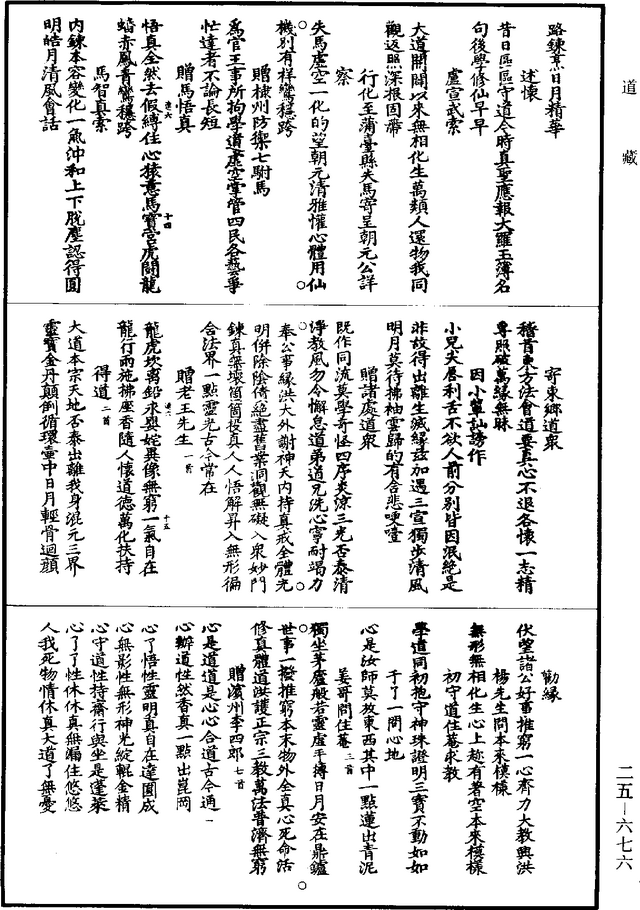 道藏
路鍊烹日月精華
述懷
昔日區區守道今時真聖應報大羅玉簿名
句後學修仙早早
盧宣武索
大道開闢以來無相化生萬類人還物我同
觀返照深根固蔕
行化至蒲臺縣失馬寄呈朝元公詳
察
失馬虛空一化的望朝元清雅懽心體用仙
機別有祥鸞穩跨
贈棣州防禦七駙馬
為官王事所拘學道虛空掌管四民各藝爭
忙達者不論長短
贈馬悟真
悟真全然去假縛住心猿意馬寶宮虎鬭龍
蟠赤鳳青鸞穩跨
馬智真索
內鍊本容變化一氣沖和上下脫塵認得圓
明皓月清風會話
寄東鄉道衆
稽首東方法會道要真心不退各懷一志精
專照破萬緣無昧
因小輩訕謗作
小兒夫唇利舌不欲人前分別皆因泯絕是
非故得出離生滅緣茲加遇三宣獨步清風
明月莫待拂袖雲歸的有含悲哽噎
贈諸處道衆
既作同流莫學奇怪四序炎涼三光否泰清
淨教風勿令懈怠道弟道兄洗心寧耐竭力
奉公事緣洪大外謝神天內持真戒全體光
明併除陰倚絕盡舊業洞觀無礙入衆妙門
鍊真藥壞箇箇投真人人悟解昇入無形徧
合法界一點靈光古今常在
贈老王先生一首
龍虎坎離鉛汞嬰姹異像無窮一氣自在
龍行雨施拂座香隨人懷道德萬化扶持
得道二首
大道本宗天地否泰出離我身混元三界
靈寶金丹顛倒循環壷中日月輕骨迴顔
勸緣
伏望諸公好事推窮一心齊力大教興洪
楊先生問本來模樣
無形無相化生心上趂有著空本來模樣
初守道住菴求教
學道同初抱守神珠證明三寶不動如如
于了一問心地
心是汝師莫放東西其中一點蓮出青泥
姜哥問住菴二首
獨坐茅廬般若靈虛平摶日月安在鼎鑪
世事一撥推窮本末物外全真心死命活
修真體道洪護正宗三教萬法普濟無窮
贈濱州李四郎七首
心是道道是心心合道古今通
心辦道性然香真一點出崑岡
心了悟性靈明真自在達圓成
心無影性無形神光綻輥金精
心守道性持齋行與坐是蓬萊
心了了性休休真無漏住悠悠
人我死物情休真大道了無憂
二五—六七六